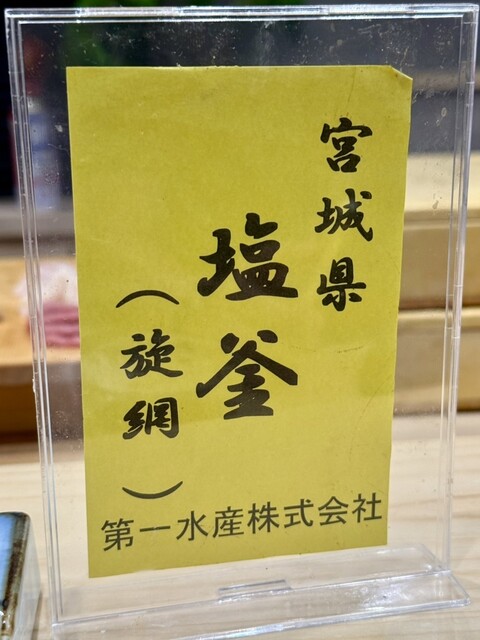 宮城県
塩釜
（旋網）
第一水産株式会社